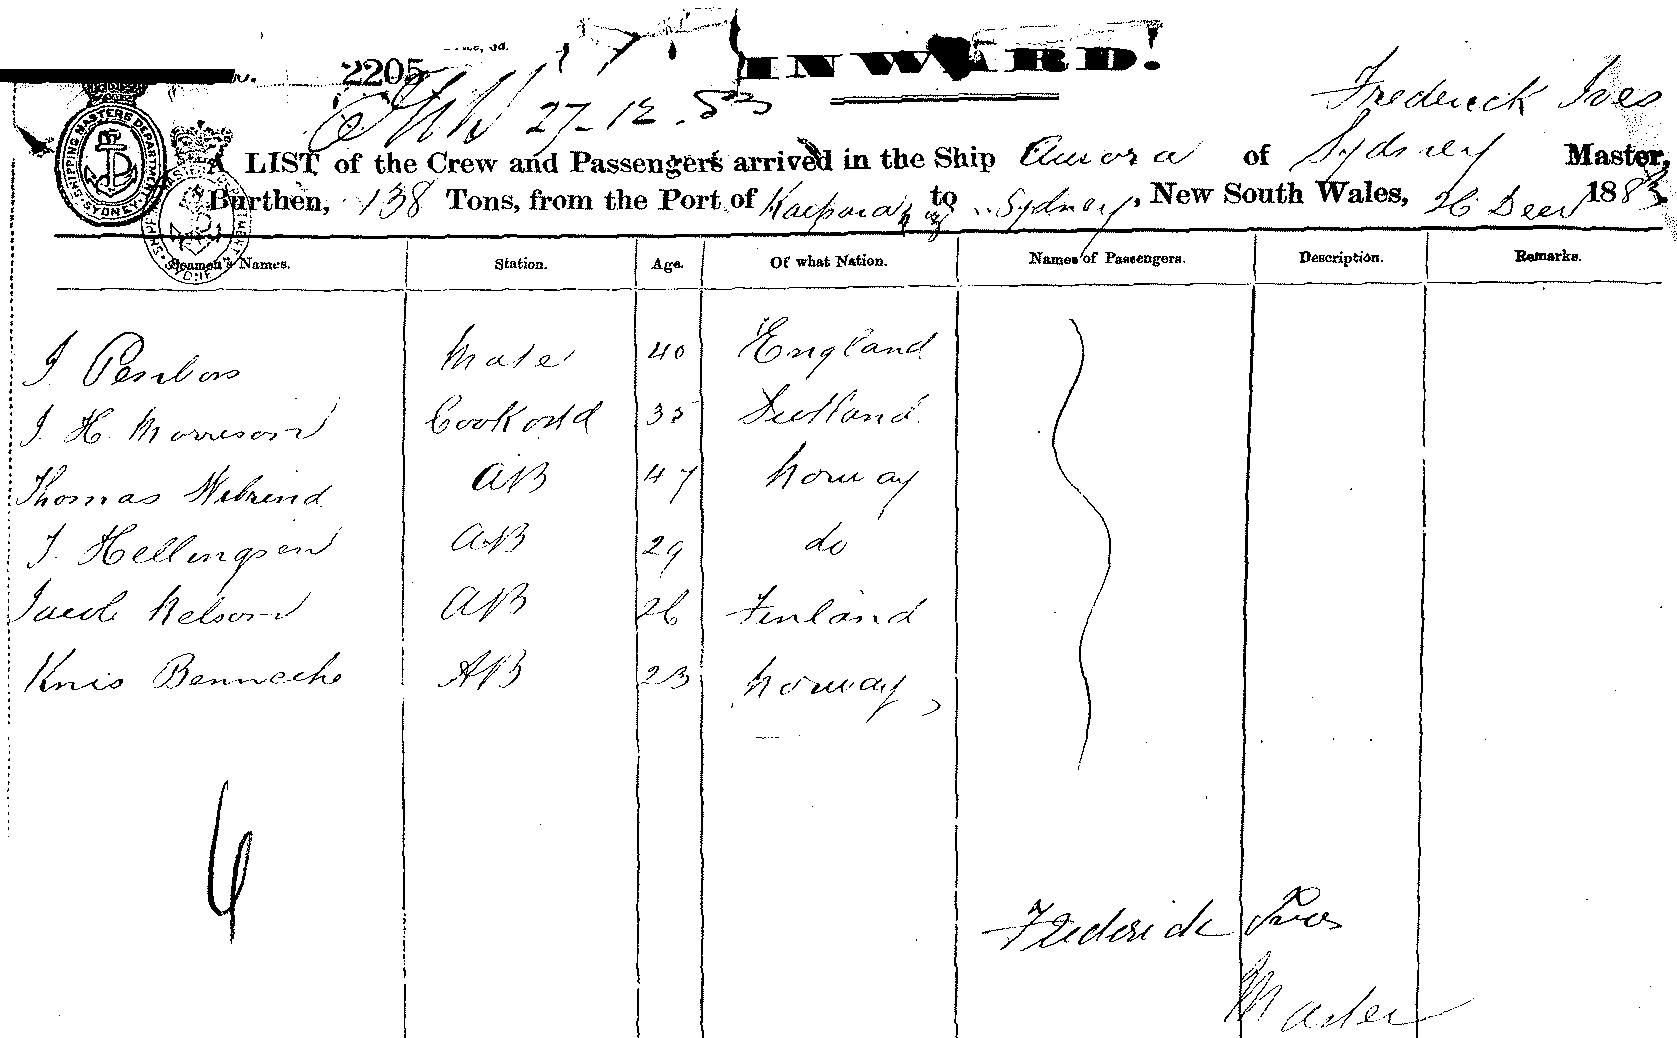 INWARD!
2205
27-12.83
Frederick Ives
A LIST of the Crew and Passengers arrived in the Ship Aurora of Sydney Master,
Burthen, 138 Tons, from the Port of Kaipara to Sydney, New South Wales, 26 Decr 1883
Seamen's Names. Station. Age. Of what Nation. Names of Passengers. Description. Remarks.
J Mate 40 England
J. H. Morrison Cook 35
Thomas AB 47 Norway
J. Hellingsen AB 29 do
Jacob Nelson AB 26 Finland
AB 23 Norway
6
Frederick Ives
Master
SHIPPING MASTERS DEPARTMENT
SYDNEY